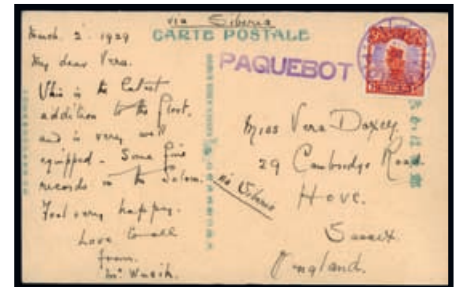 via Siberia
CARTE POSTALE
March 2. 1929
My dear Vera.
This is the latest
addition to the fleet,
and is very well
equipped - Some fine
records in the Saloon.
Feel very happy.
Love to all
from
PAQUEBOT
Miss Vera Doxey
29 Cambridge Road
via Siberia
Hove.
Sussex
England.